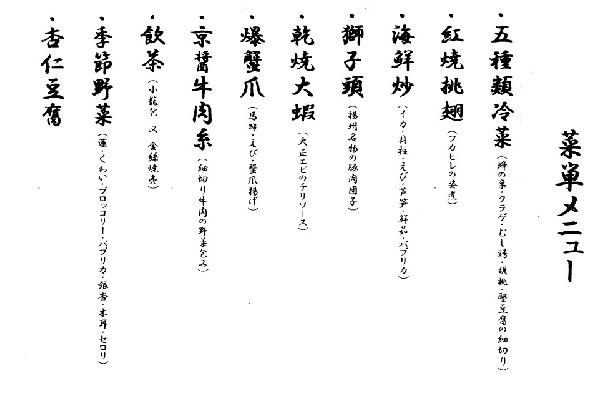 菜単メニュー
・五種類冷菜(蝉の巣・クラゲ・むし鶏・胡桃・堅豆腐の細切り)
・紅焼排翅(フカヒレの姿煮)
・海鮮炒(イカ・貝柱・えび・芦笋・鮮茹・パプリカ)
・獅子頭(揚州名物の豚肉団子)
・乾焼大蝦(大正エビのチリソース)
・爆蟹爪(馬蹄・えび・蟹爪揚げ)
・京醤牛肉糸(細切り牛肉の野菜包み)
・飲茶(小籠包 又 金絲焼売)
・季節野菜(蓮・くわい・ブロッコリー・パプリカ・銀杏・木耳・セロリ)
・杏仁豆腐